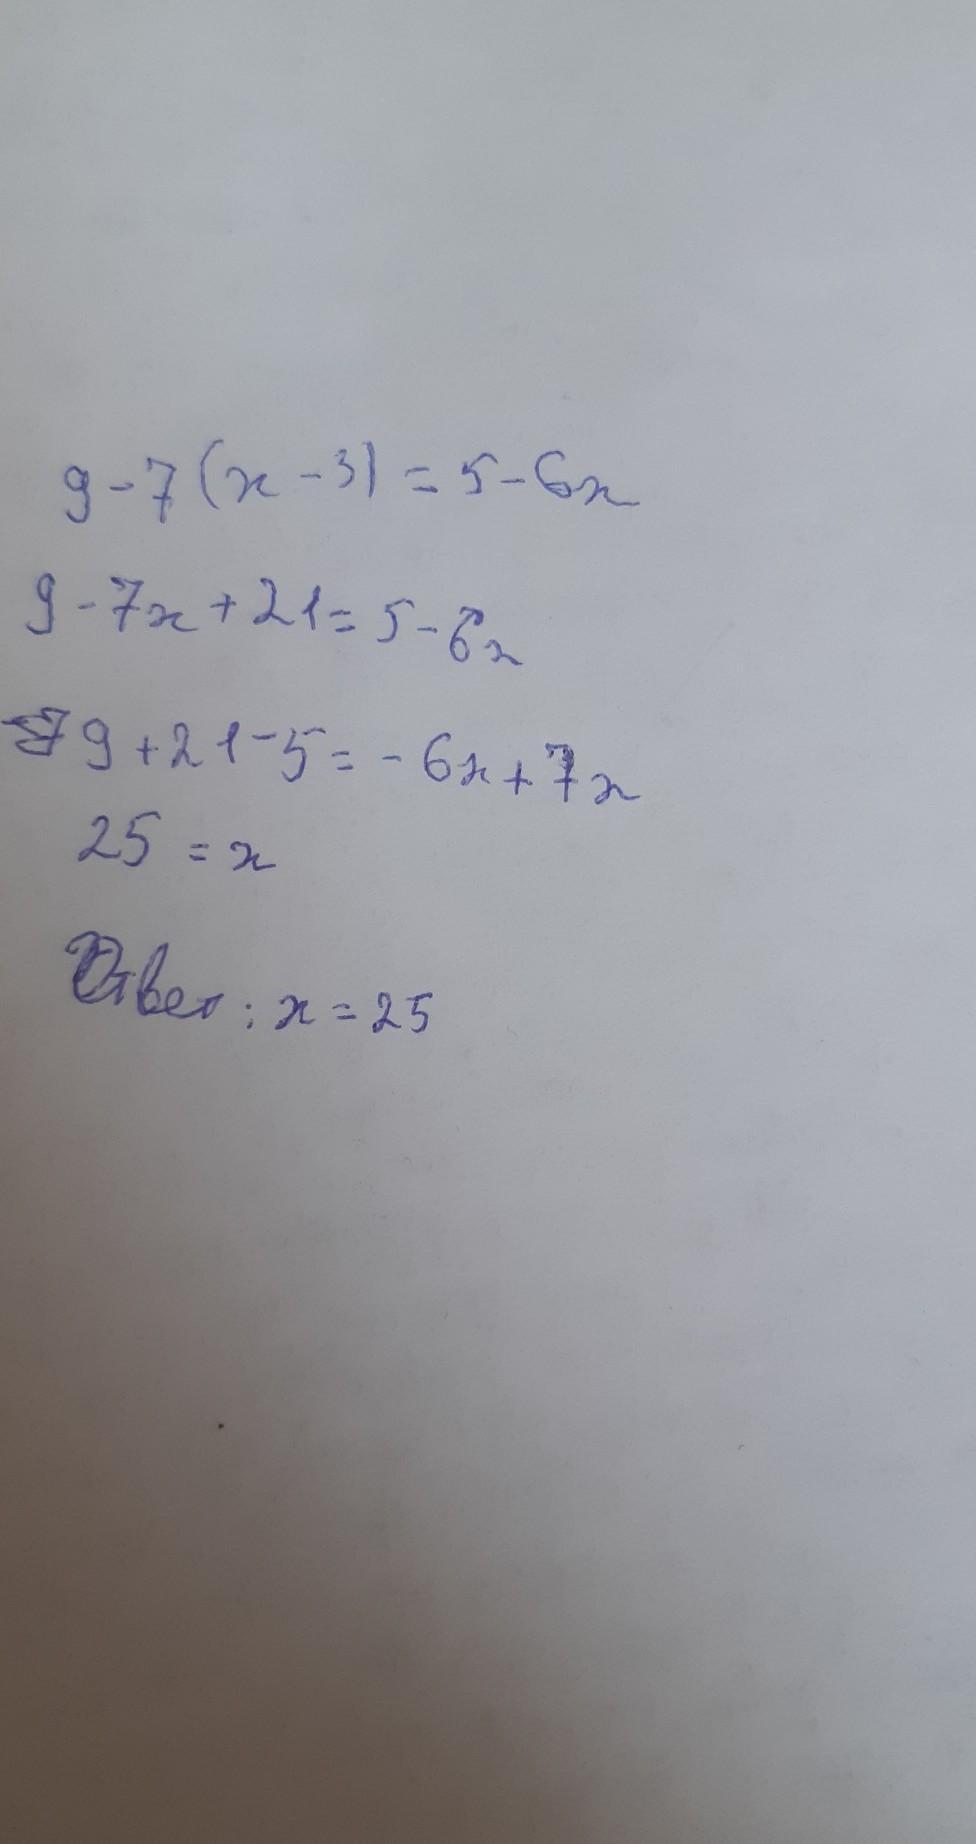 9-7(x-3)=5-6x
9-7x+21=5-6x
9+21-5=-6x+7x
25=x
Ответ: x=25